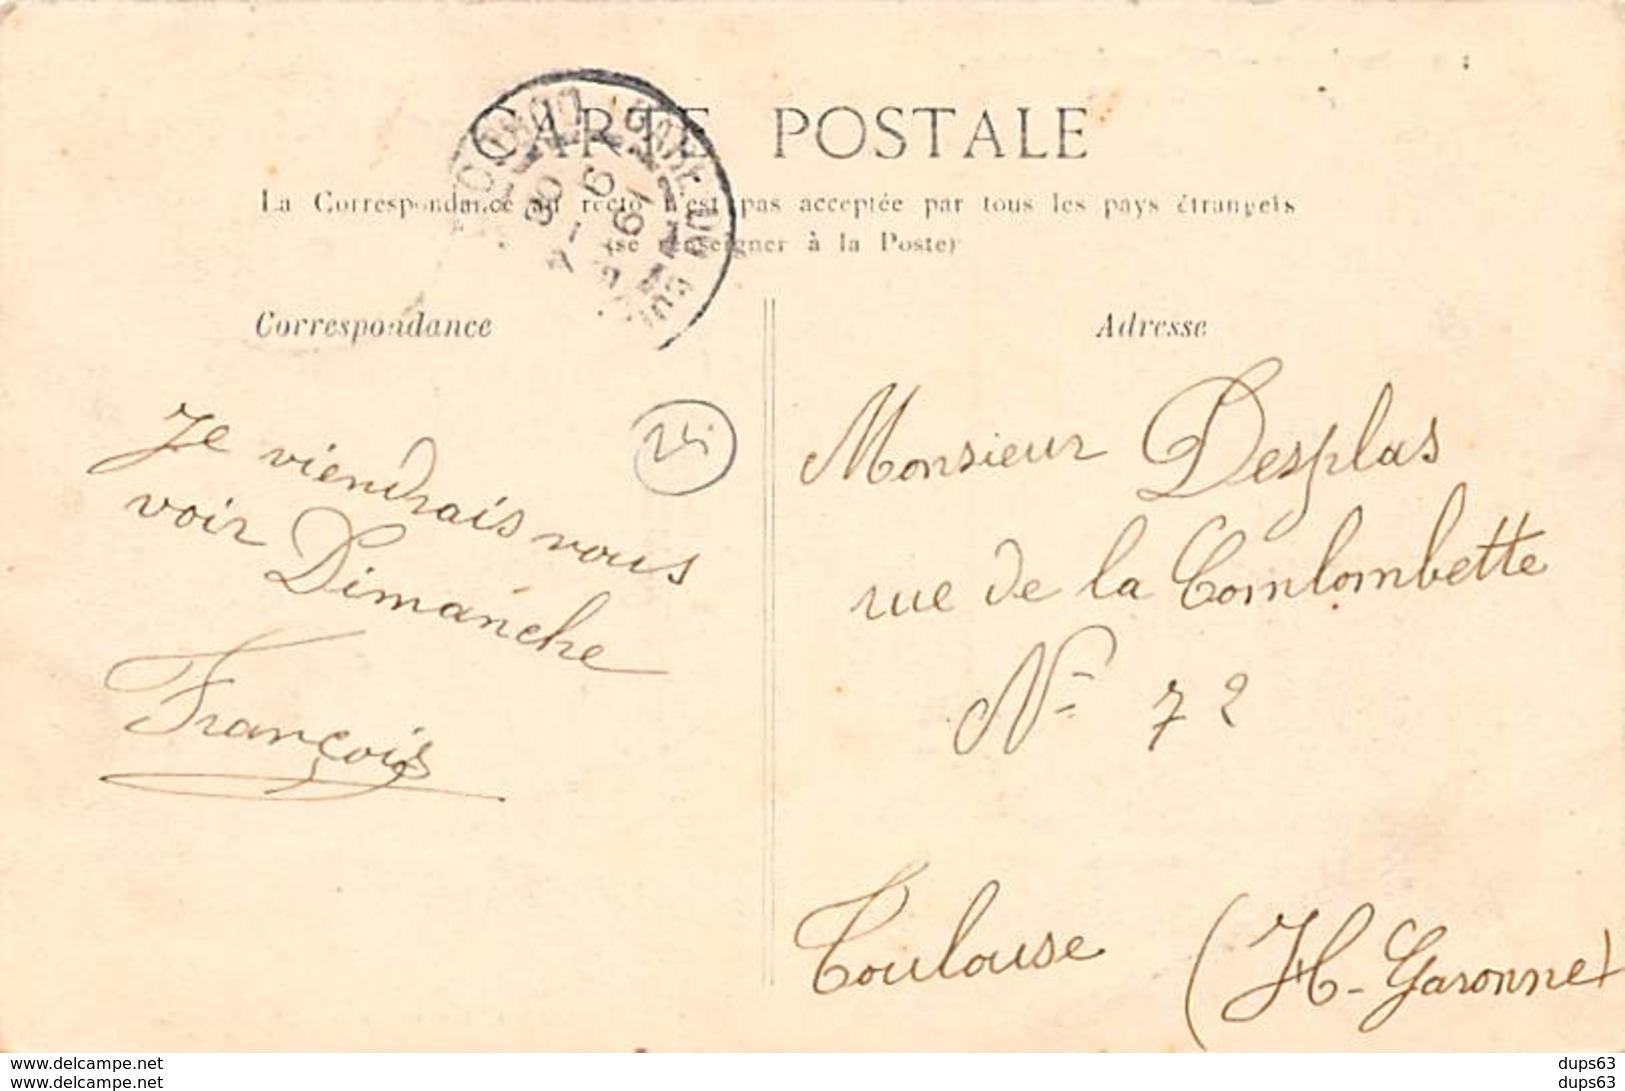 CARTE POSTALE
La Correspondance au recto n'est pas acceptée par tous les pays étrangers
(se renseigner à la Poste)
Correspondance
Je viendrais vous
voir Dimanche
François
Adresse
Monsieur Desplas
rue de la Comlombette
N= 72
Toulouse (H-Garonne)
www.delcampe.net
www.delcampe.net
dups63
dups63